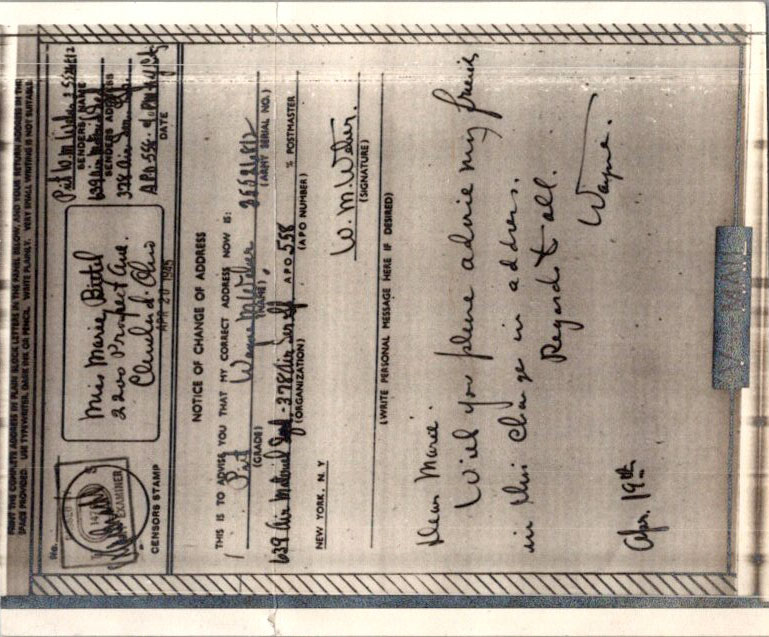 PRINT THE COMPLETE ADDRESS IN PLAIN BLOCK LETTERS IN THE PANEL BELOW, AND YOUR RETURN ADDRESS IN THE
SPACE PROVIDED. USE TYPEWRITER, DARK INK OR PENCIL. WRITE PLAINLY. VERY SMALL WRITING IS NOT SUITABLE.
No.
EXAMINER
CENSORS STAMP
Miss Marie
2200 Prospect Ave.
Cleveland. Ohio
APR 20 1945
Pvt W. M. Weber
SENDERS NAME
639 Air Material
SENDERS ADDRESS
378 Air
APO 558
DATE
NOTICE OF CHANGE OF ADDRESS
THIS IS TO ADVISE YOU THAT MY CORRECT ADDRESS NOW IS:
Pvt Wayne M Weber
(GRADE) (NAME) (ARMY SERIAL NO.)
639 Air Material - 378 Air APO 558 % POSTMASTER
(ORGANIZATION) (APO NUMBER)
NEW YORK, N. Y
W. M. Weber.
(SIGNATURE)
(WRITE PERSONAL MESSAGE HERE IF DESIRED)
Dear Marie.
Will you please advise my friends
in this change in address.
Regards to all.
Wayne.
Apr. 19th
V-MAIL